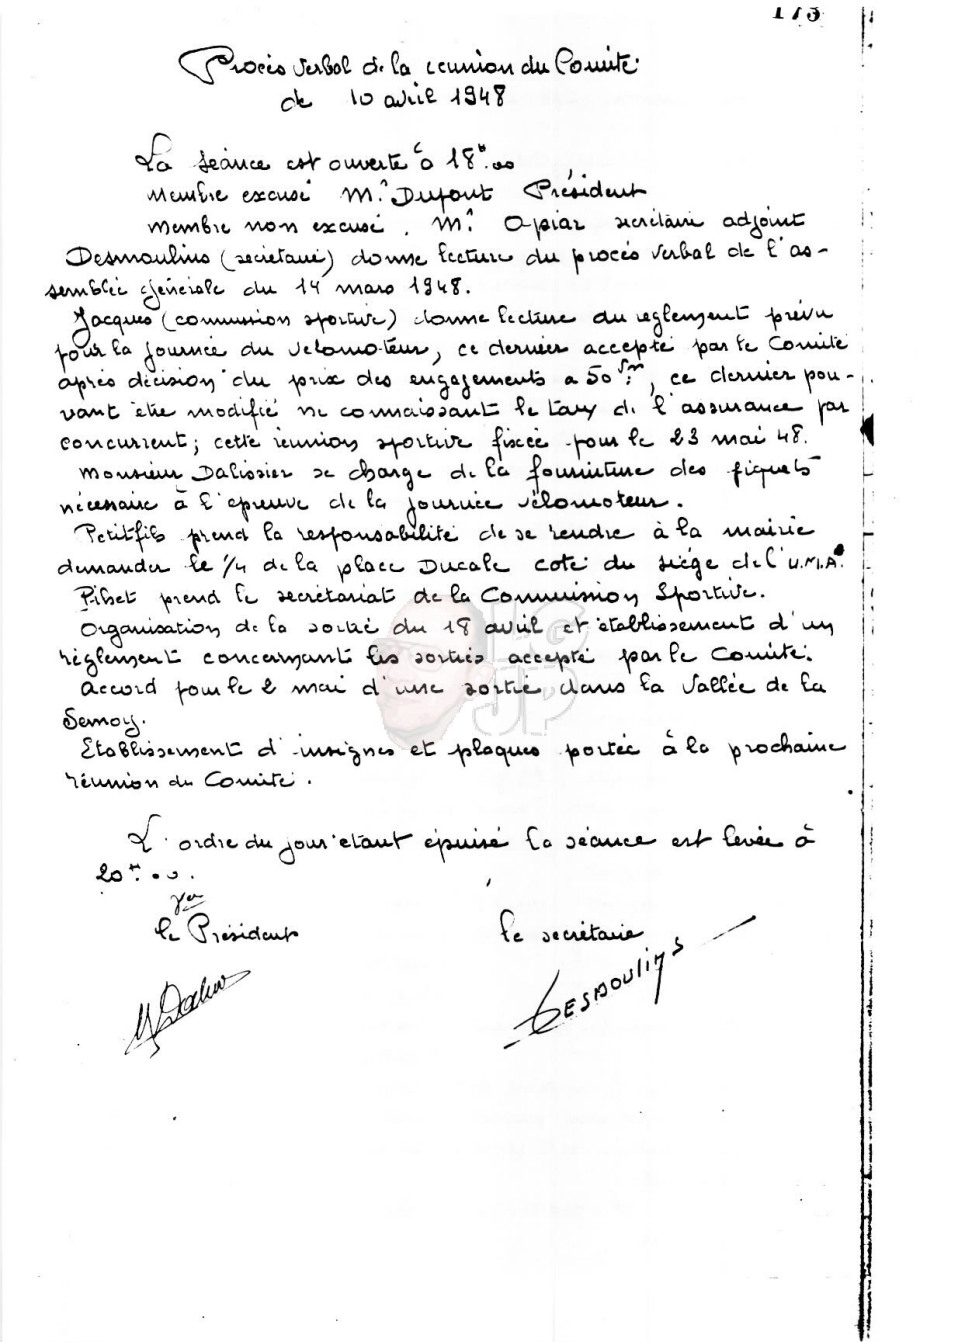 173
Procès verbal de la reunion du Comité
de 10 avril 1948
La séance est ouverte à 18h.00
Membre excusé Mr Dupont Président
Membre non excusé. Mr Apiar secrétaire adjoint
Desmoulins (secrétaire) donne lecture du procès verbal de l'as-
semblée générale du 14 mars 1948.
Jacques (commission sportive) donne lecture du règlement prévu
pour la journée du vélomoteur, ce dernier accepté par le Comité
après décision du prix des engagements a 50 frs, ce dernier pou-
vant être modifié ne connaissant le taux de l'assurance par
concurrent; cette réunion sportive fixée pour le 23 mai 48.
Monsieur Dalissier se charge de la fourniture des piquets
nécessaire à l'épreuve de la journée vélomoteur.
Petitfils prend la responsabilité de se rendre à la mairie
demander le 1/4 de la place Ducale coté du siège de l'U.M.A.
Pibet prend le secrétariat de la Commission Sportive.
Organisation de la sortie du 18 avril et établissement d'un
règlement concernant les sorties accepté par le Comité.
Accord pour le 2 mai d'une sortie dans la Vallée de la
Semoy.
Etablissement d'insignes et plaques portée à la prochaine
réunion du Comité.
L'ordre du jour étant épuisé la séance est levée à
20h.00.
le Président le secrétaire
DESMOULINS
LG
JP